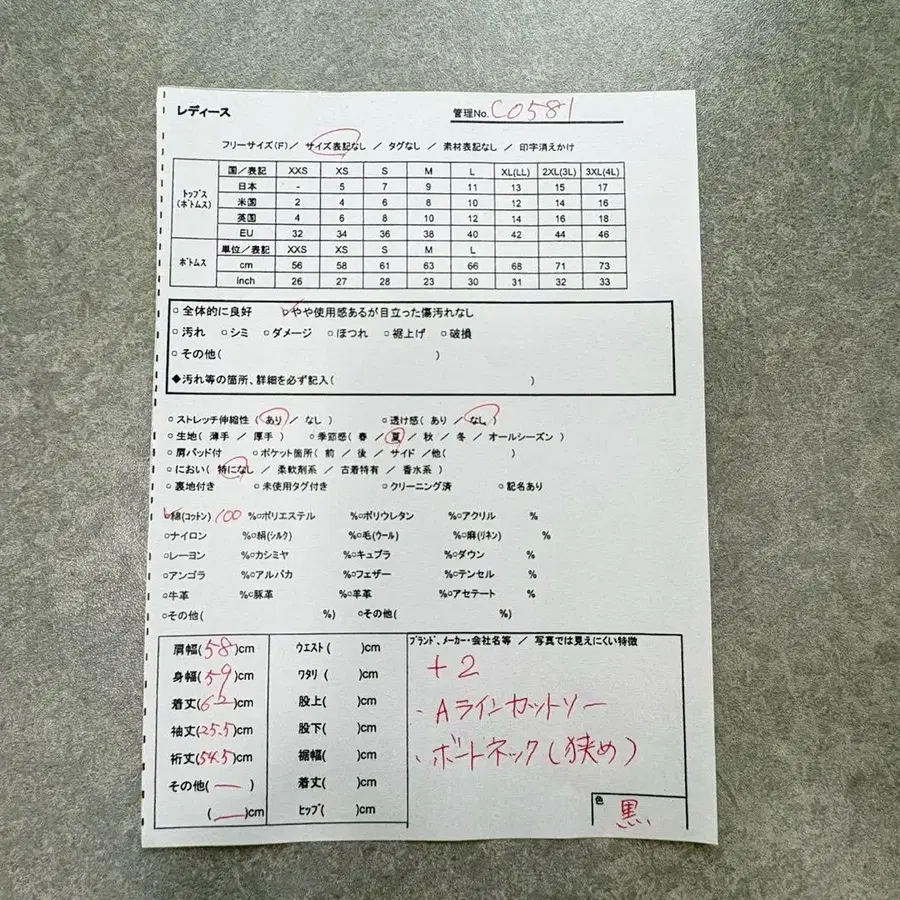 レディース
管理No. C0581
フリーサイズ(F) / サイズ表記なし / タグなし / 素材表記なし / 印字消えかけ
トップス(ボトムス)
国/表記 XXS XS S M L XL(LL) 2XL(3L) 3XL(4L)
日本 - 5 7 9 11 13 15 17
米国 2 4 6 8 10 12 14 16
英国 4 6 8 10 12 14 16 18
EU 32 34 36 38 40 42 44 46
ボトムス
単位/表記 XXS XS S M L
cm 56 58 61 63 66 68 71 73
inch 26 27 28 23 30 31 32 33
▫全体的に良好 ▫やや使用感あるが目立った傷汚れなし
▫汚れ ▫シミ ▫ダメージ ▫ほつれ ▫裾上げ ▫破損
▫その他( )
◆汚れ等の箇所、詳細を必ず記入( )
▫ストレッチ伸縮性( あり / なし ) ▫透け感( あり / なし )
▫生地( 薄手 / 厚手 ) ▫季節感( 春 / 夏 / 秋 / 冬 / オールシーズン )
▫肩パッド付 ▫ポケット箇所( 前 / 後 / サイド /他( )
▫におい( 特になし / 柔軟剤系 / 古着特有 / 香水系 )
▫裏地付き ▫未使用タグ付き ▫クリーニング済 ▫記名あり
▫綿(コットン) 100 %▫ポリエステル %▫ポリウレタン %▫アクリル %
▫ナイロン %▫絹(シルク) %▫毛(ウール) %▫麻(リネン) %
▫レーヨン %▫カシミヤ %▫キュプラ %▫ダウン %
▫アンゴラ %▫アルパカ %▫フェザー %▫テンセル %
▫牛革 %▫豚革 %▫羊革 %▫アセテート %
▫その他( %) ▫その他( %)
肩幅(58)cm
身幅(59)cm
着丈(62)cm
袖丈(25.5)cm
裄丈(54.5)cm
その他( — )
( — )cm
ウエスト( )cm
ワタリ( )cm
股上( )cm
股下( )cm
裾幅( )cm
着丈( )cm
ヒップ( )cm
ブランド、メーカー・会社名等 / 写真では見えにくい特徴
+2
・Aラインカットソー
・ボートネック(狭め)
色
黒